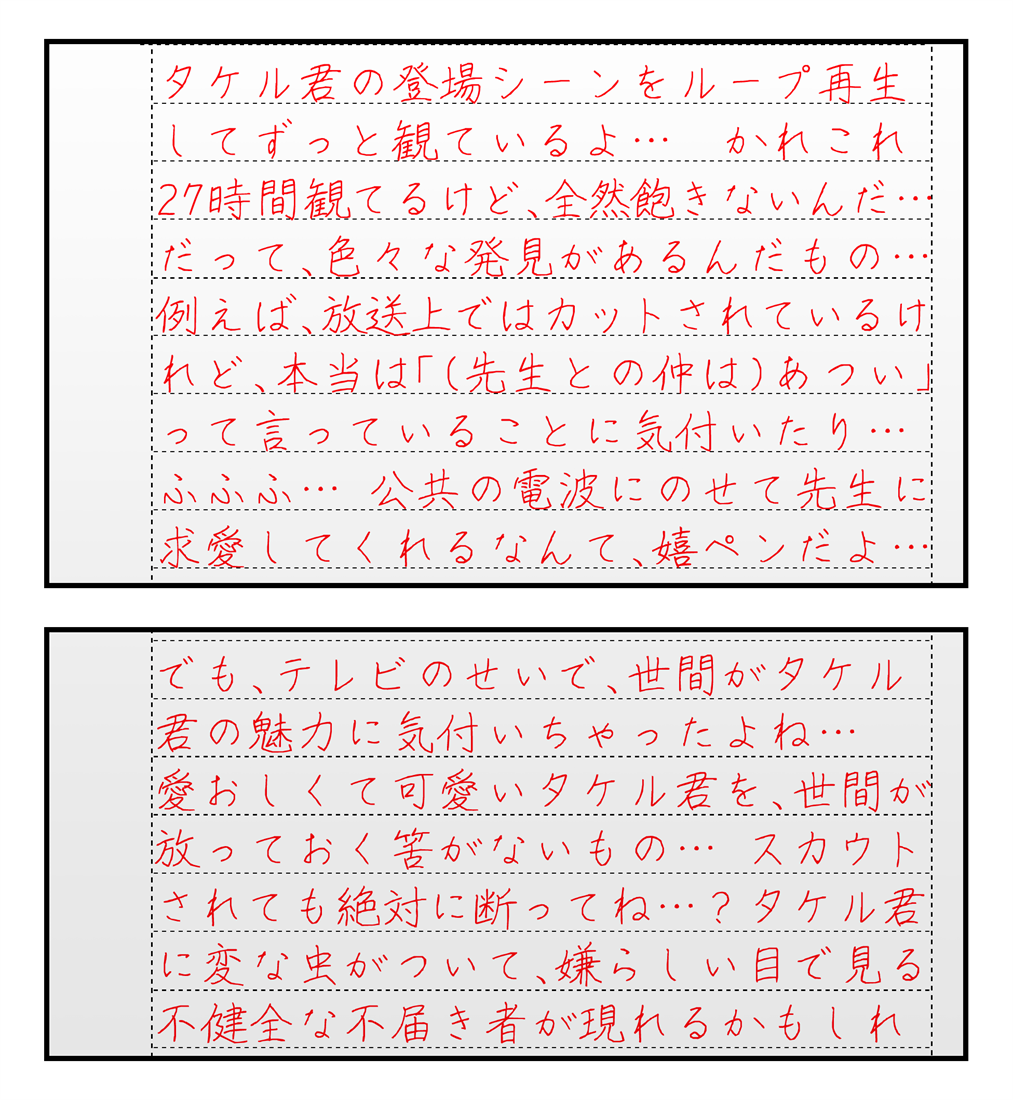 タケル君の登場シーンをループ再生
してずっと観ているよ… かれこれ
27時間観てるけど、全然飽きないんだ…
だって、色々な発見があるんだもの…
例えば、放送上ではカットされているけ
れど、本当は「(先生との仲は)あつい」
って言っていることに気付いたり…
ふふふ… 公共の電波にのせて先生に
求愛してくれるなんて、嬉ペンだよ…
でも、テレビのせいで、世間がタケル
君の魅力に気付いちゃったよね…
愛おしくて可愛いタケル君を、世間が
放っておく筈がないもの… スカウト
されても絶対に断ってね…？タケル君
に変な虫がついて、嫌らしい目で見る
不健全な不届き者が現れるかもしれ